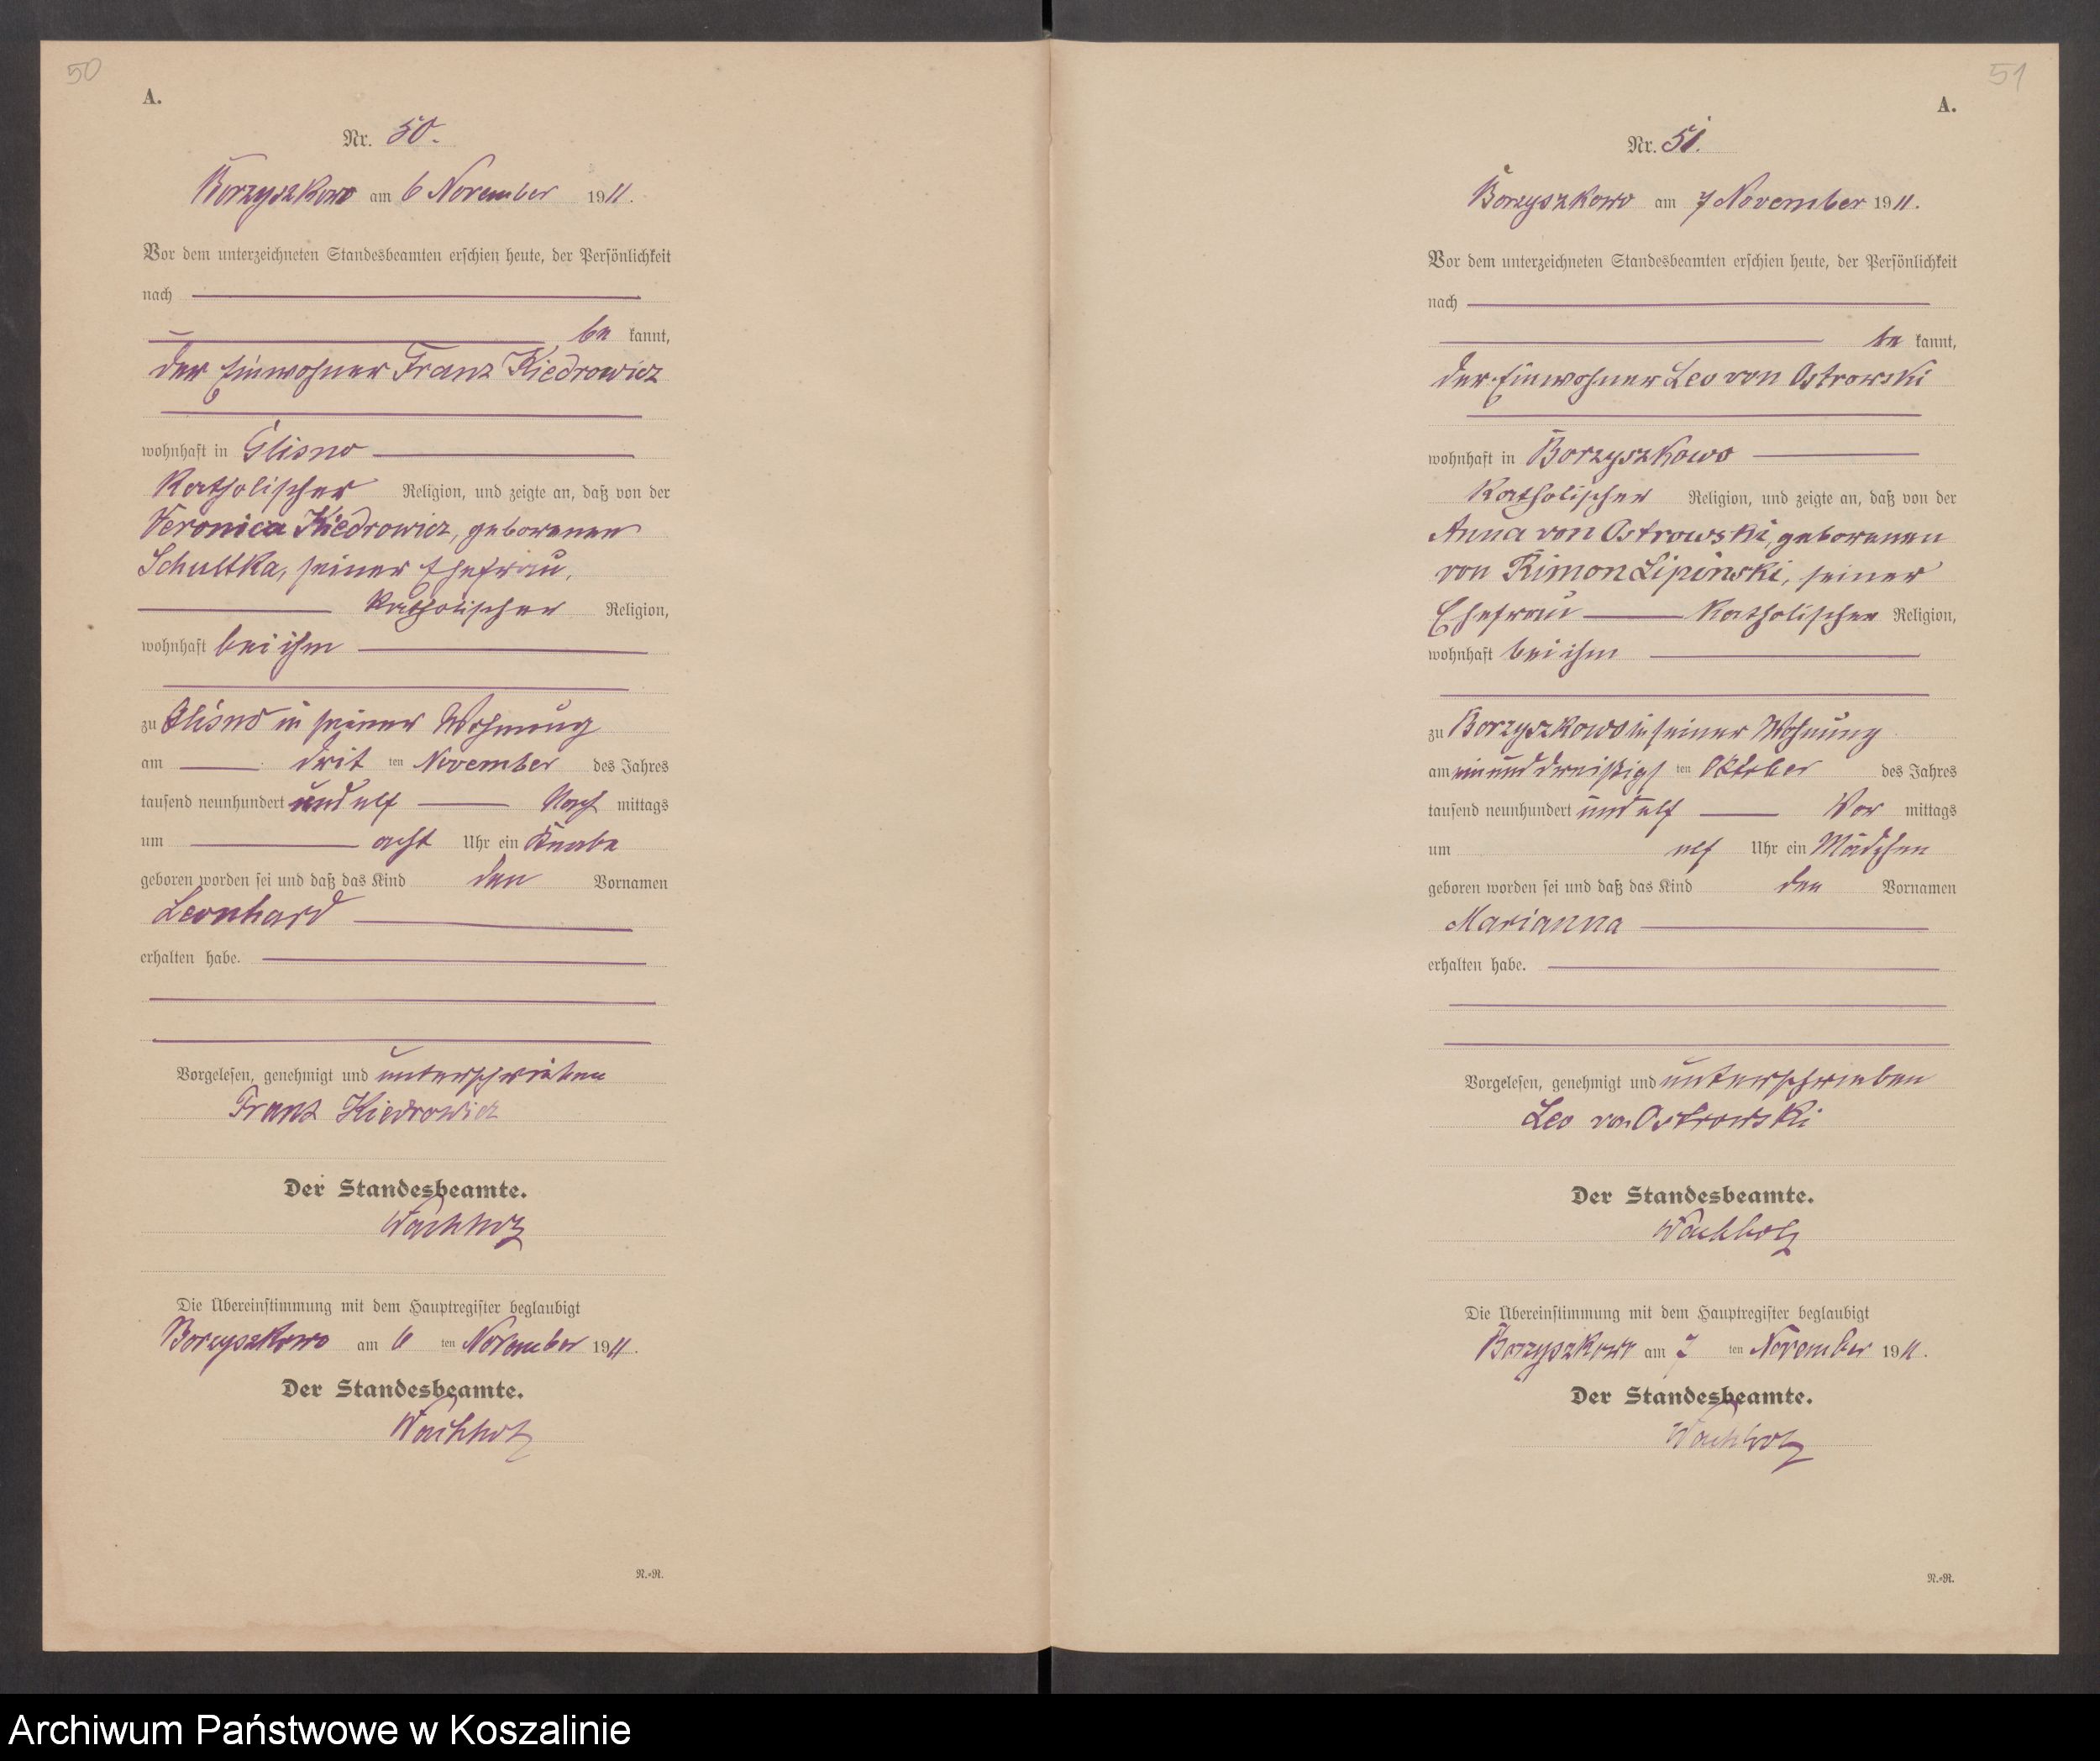 50
A.
Nr. 50.
Borzyszkowo am 6 November 1911.
Vor dem unterzeichneten Standesbeamten erschien heute, der Persönlichkeit
nach
be kannt,
der Einwohner Franz Kiedrowicz
wohnhaft in Glisno
katholischer Religion, und zeigte an, daß von der
Veronica Kiedrowicz, geborenen
Schultka, seiner Ehefrau,
katholischer Religion,
wohnhaft bei ihm
zu Glisno in seiner Wohnung
am drit ten November des Jahres
tausend neunhundert und elf Nach mittags
um acht Uhr ein Knabe
geboren worden sei und daß das Kind den Vornamen
Leonhard
erhalten habe.
Vorgelesen, genehmigt und unterschrieben
Franz Kiedrowicz
Der Standesbeamte.
Wachholz
Die Übereinstimmung mit dem Hauptregister beglaubigt
Borzyszkowo am 6 ten November 1911.
Der Standesbeamte.
Wachholz
N.=N.
51
A.
Nr. 51.
Borzyszkowo am 7 November 1911.
Vor dem unterzeichneten Standesbeamten erschien heute, der Persönlichkeit
nach
be kannt,
der Einwohner Leo von Ostrowski
wohnhaft in Borzyszkowo
katholischer Religion, und zeigte an, daß von der
Anna von Ostrowski, geborenen
von Rimon Lipinski, seiner
Ehefrau katholischer Religion,
wohnhaft bei ihm
zu Borzyszkowo in seiner Wohnung
am einunddreißigs ten Oktober des Jahres
tausend neunhundert und elf Vor mittags
um elf Uhr ein Mädchen
geboren worden sei und daß das Kind den Vornamen
Marianna
erhalten habe.
Vorgelesen, genehmigt und unterschrieben
Leo von Ostrowski
Der Standesbeamte.
Wachholz
Die Übereinstimmung mit dem Hauptregister beglaubigt
Borzyszkowo am 7 ten November 1911.
Der Standesbeamte.
Wachholz
N.=N.
Archiwum Państwowe w Koszalinie